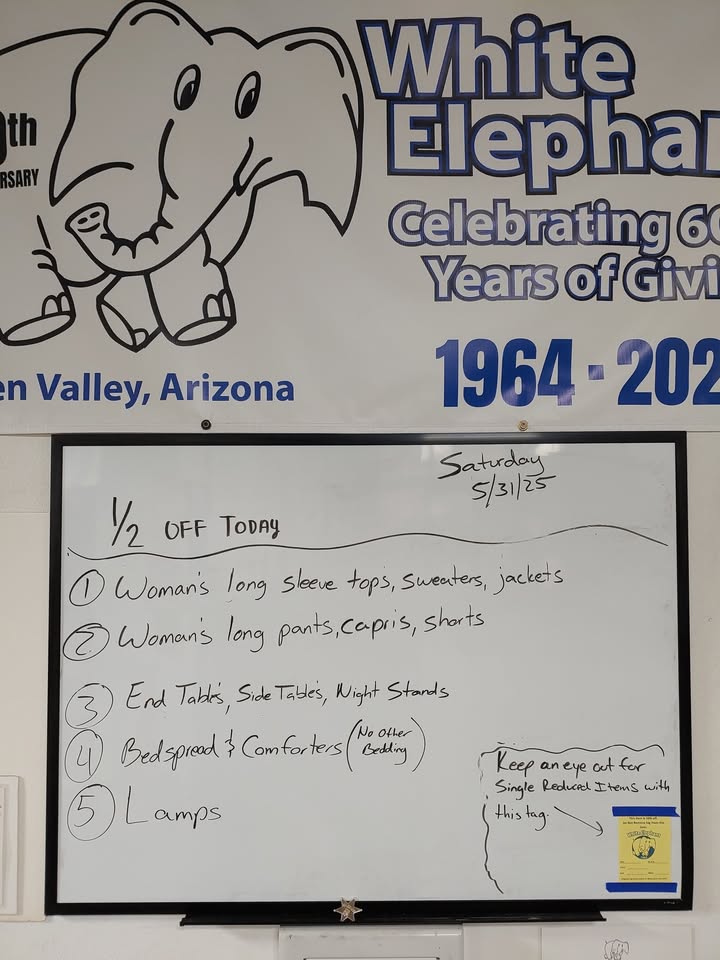 th
RSARY
White
Elepha
Celebrating 60
Years of Givi
en Valley, Arizona
1964 - 202
Saturday
5/31/25
1/2 OFF TODAY
1 Woman's long sleeve tops, sweaters, jackets
2 Woman's long pants, capris, shorts
3 End Tables, Side Tables, Night Stands
4 Bedspread & Comforters (No Other Bedding)
5 Lamps
Keep an eye out for
Single Reduced Items with
this tag.
White Elephant